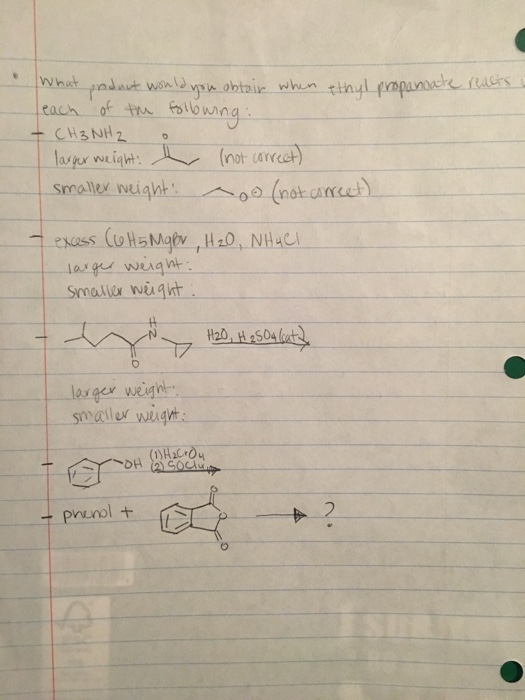 • What product would you obtain when ethyl propanoate reacts
each of the following:
- CH3NH2
O
larger weight: (not correct)
smaller weight: O⊖ (not correct)
- excess C6H5MgBr, H2O, NH4Cl
larger weight:
smaller weight:
H
N
O
H2O, H2SO4 (cat)
larger weight:
smaller weight:
OH (1) H2CrO4
(2) SOCl2
- phenol + O O O → ?